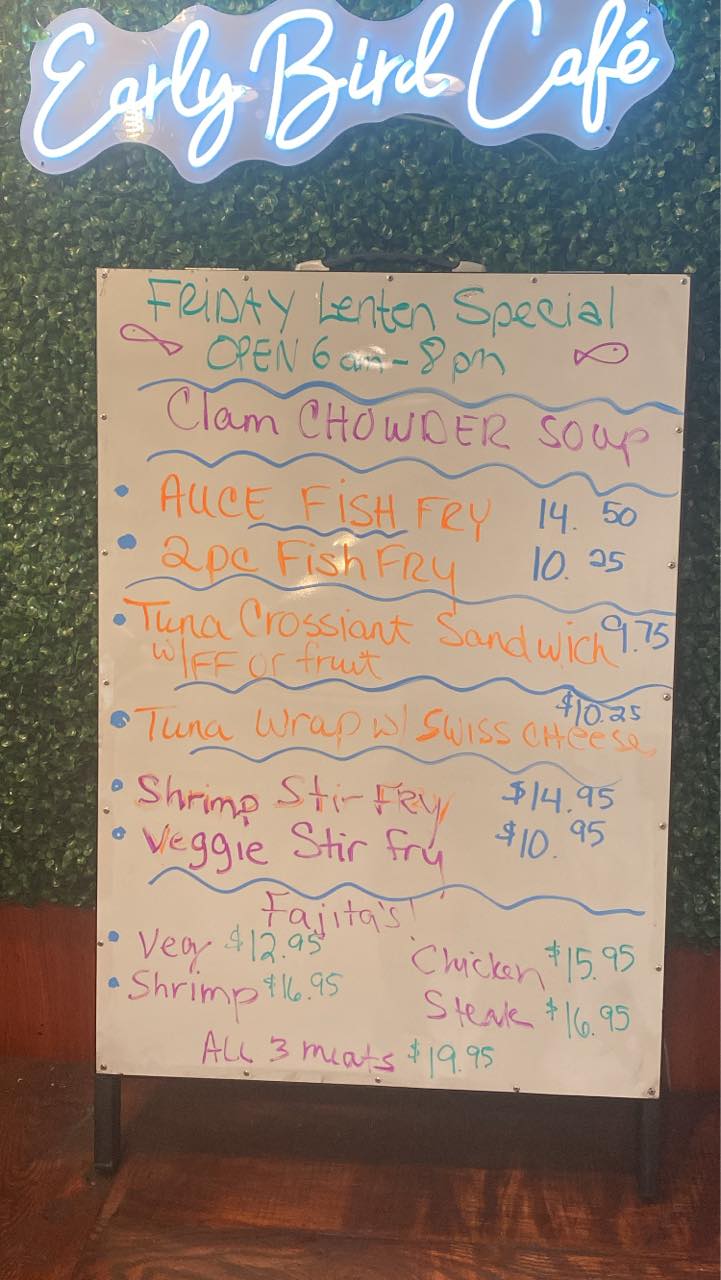 Early Bird Café
FRIDAY Lenten Special
OPEN 6am-8pm
Clam CHOWDER SOUP
• AUCE FISH FRY 14.50
• 2pc Fish FRY 10.25
• Tuna Crossiant Sandwich 9.75
w/FF or fruit
$10.25
• Tuna Wrap w/ SWISS CHeese
• Shrimp Stir FRY $14.95
• Veggie Stir fry $10.95
Fajita's!
• Veg $12.95 Chicken $15.95
• Shrimp $16.95 Steak $16.95
ALL 3 meats $19.95